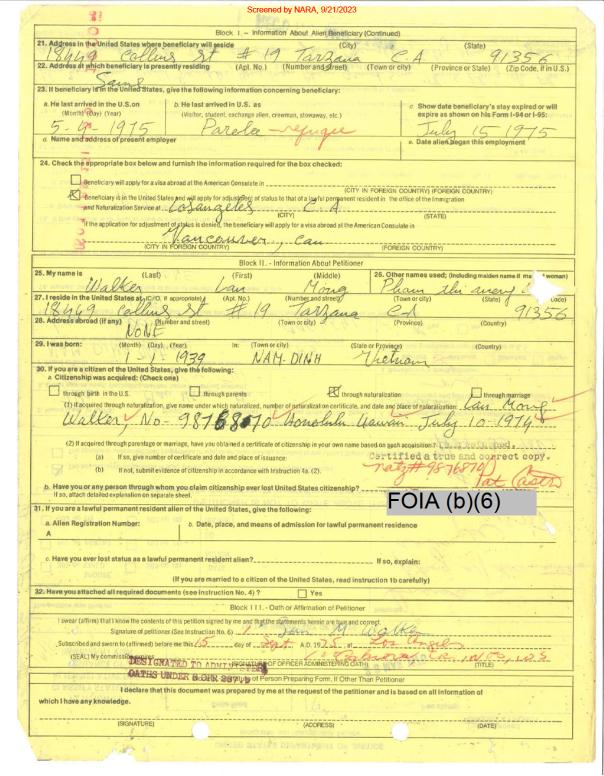 Screened by NARA, 9/21/2023
Block I. – Information About Alien Beneficiary (Continued)
21. Address in the United States where beneficiary will reside (City) (State)
18469 Collins St # 19 Tarzana CA 91356
22. Address at which beneficiary is presently residing (Apt. No.) (Number and street) (Town or city) (Province or State) (Zip Code, if in U.S.)
Same
23. If beneficiary is in the United States, give the following information concerning beneficiary:
a. He last arrived in the U.S. on (Month) (Day) (Year)
5-9-1975
b. He last arrived in U.S. as (Visitor, student, exchange alien, crewman, stowaway, etc.)
Parole - refugee
c. Show date beneficiary's stay expired or will expire as shown on his Form I-94 or I-95:
July 15 1975
d. Name and address of present employer
e. Date alien began this employment
24. Check the appropriate box below and furnish the information required for the box checked:
Beneficiary will apply for a visa abroad at the American Consulate in
(CITY IN FOREIGN COUNTRY) (FOREIGN COUNTRY)
Beneficiary is in the United States and will apply for adjustment of status to that of a lawful permanent resident in the office of the Immigration
and Naturalization Service at Los angeles CA
(CITY) (STATE)
If the application for adjustment of status is denied, the beneficiary will apply for a visa abroad at the American Consulate in
Vancouver, Can
(CITY IN FOREIGN COUNTRY) (FOREIGN COUNTRY)
Block II. - Information About Petitioner
25. My name is (Last) (First) (Middle)
Walker Lan Mong
26. Other names used; (Including maiden name if woman)
Pham thi
27. I reside in the United States at: (C/O, if appropriate) (Apt. No.) (Number and street) (Town or city) (State)
18469 Collins St # 19 Tarzana CA 91356
28. Address abroad (if any) (Number and street) (Town or city) (Province) (Country)
NONE
29. I was born: (Month) (Day) (Year) In: (Town or city) (State or Province) (Country)
1-1-1939 NAM-DINH Vietnam
30. If you are a citizen of the United States, give the following:
a. Citizenship was acquired: (Check one)
through birth in the U.S. through parents through naturalization through marriage
(1) If acquired through naturalization, give name under which naturalized, number of naturalization certificate, and date and place of naturalization: Lan Mong
Walker, No- 9876870 Honolulu Hawaii July 10-1974
(2) If acquired through parentage or marriage, have you obtained a certificate of citizenship in your own name based on such acquisition?
(a) If so, give number of certificate and date of place of issuance:
Certified a true and correct copy.
(b) If not, submit evidence of citizenship in accordance with Instruction 4a. (2).
natz # 9876870
Pat Castro
b. Have you or any person through whom you claim citizenship ever lost United States citizenship?
If so, attach detailed explanation on separate sheet.
FOIA (b)(6)
31. If you are a lawful permanent resident alien of the United States, give the following:
a. Alien Registration Number: b. Date, place, and means of admission for lawful permanent residence
A
c. Have you ever lost status as a lawful permanent resident alien? If so, explain:
(If you are married to a citizen of the United States, read instruction 1b carefully)
32. Have you attached all required documents (see Instruction No. 4) ? Yes
Block III.- Oath or Affirmation of Petitioner
I swear (affirm) that I know the contents of this petition signed by me and that the statements herein are true and correct.
Signature of petitioner (See Instruction No. 6) Lan M Walker
Subscribed and sworn to (affirmed) before me this 15 day of Sept A.D. 19 75 at Los Angeles
(SEAL) My commission expires
(SIGNATURE OF OFFICER ADMINISTERING OATH) (TITLE)
DESIGNATED TO ADMINISTER
OATHS UNDER 8 CFR
of Person Preparing Form, If Other Than Petitioner
I declare that this document was prepared by me at the request of the petitioner and is based on all information of
which I have any knowledge.
(SIGNATURE) (ADDRESS) (DATE)